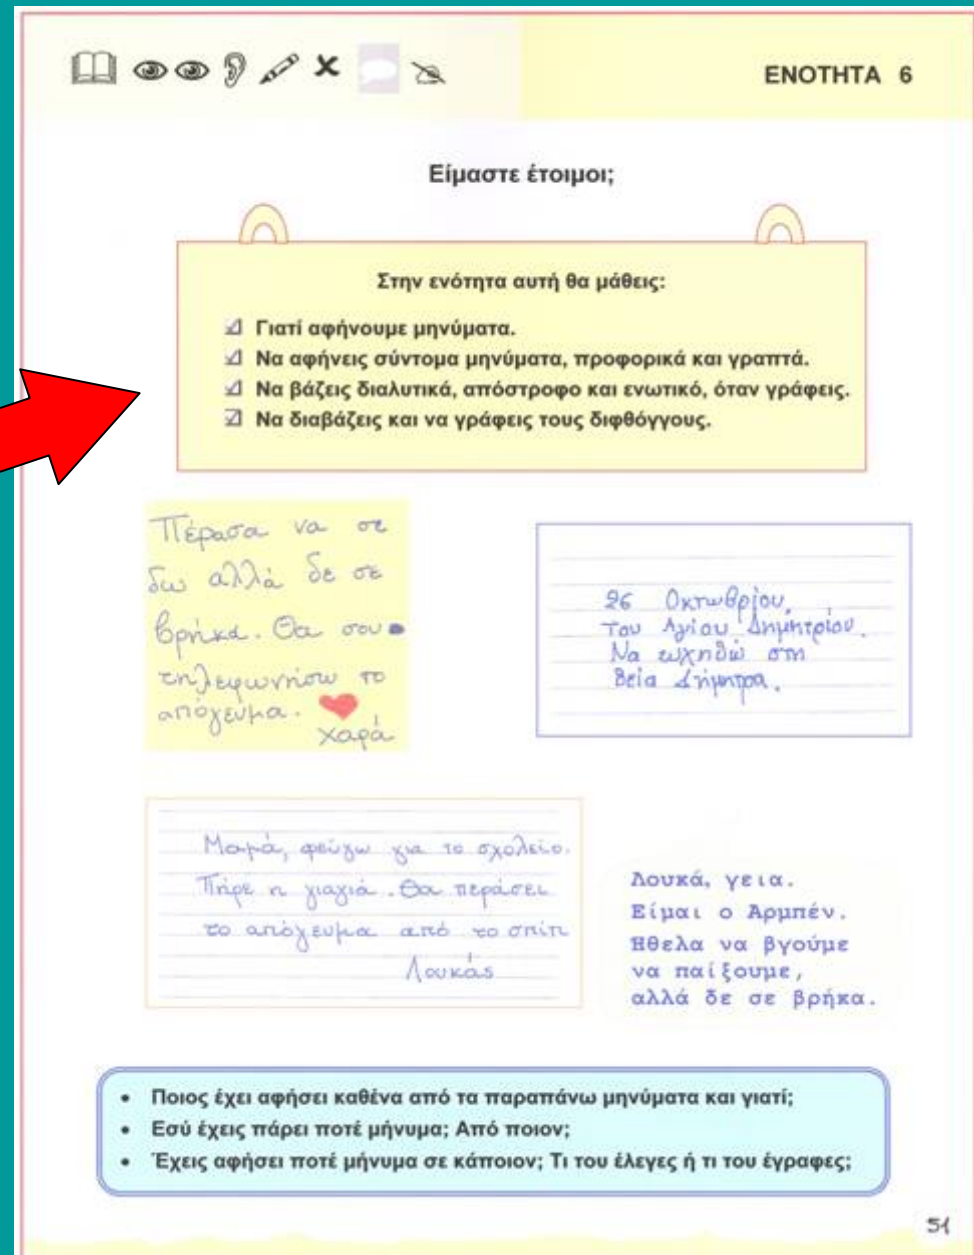 ΕΝΟΤΗΤΑ 6
Είμαστε έτοιμοι;
Στην ενότητα αυτή θα μάθεις:
Γιατί αφήνουμε μηνύματα.
Να αφήνεις σύντομα μηνύματα, προφορικά και γραπτά.
Να βάζεις διαλυτικά, απόστροφο και ενωτικό, όταν γράφεις.
Να διαβάζεις και να γράφεις τους διφθόγγους.
Πέρασα να σε
δω αλλά δε σε
βρήκα. Θα σου
τηλεφωνήσω το
απόγευμα.
Χαρά
26 Οκτωβρίου,
του Αγίου Δημητρίου.
Να ευχηθώ στη
θεία Δήμητρα.
Μαμά, φεύγω για το σχολείο.
Πήρε η γιαγιά. Θα περάσει
το απόγευμα από το σπίτι
Λουκάς
Λουκά, γεια.
Είμαι ο Αρμπέν.
Ηθελα να βγούμε
να παίξουμε,
αλλά δε σε βρήκα.
• Ποιος έχει αφήσει καθένα από τα παραπάνω μηνύματα και γιατί;
• Εσύ έχεις πάρει ποτέ μήνυμα; Από ποιον;
• Έχεις αφήσει ποτέ μήνυμα σε κάποιον; Τι του έλεγες ή τι του έγραφες;
51